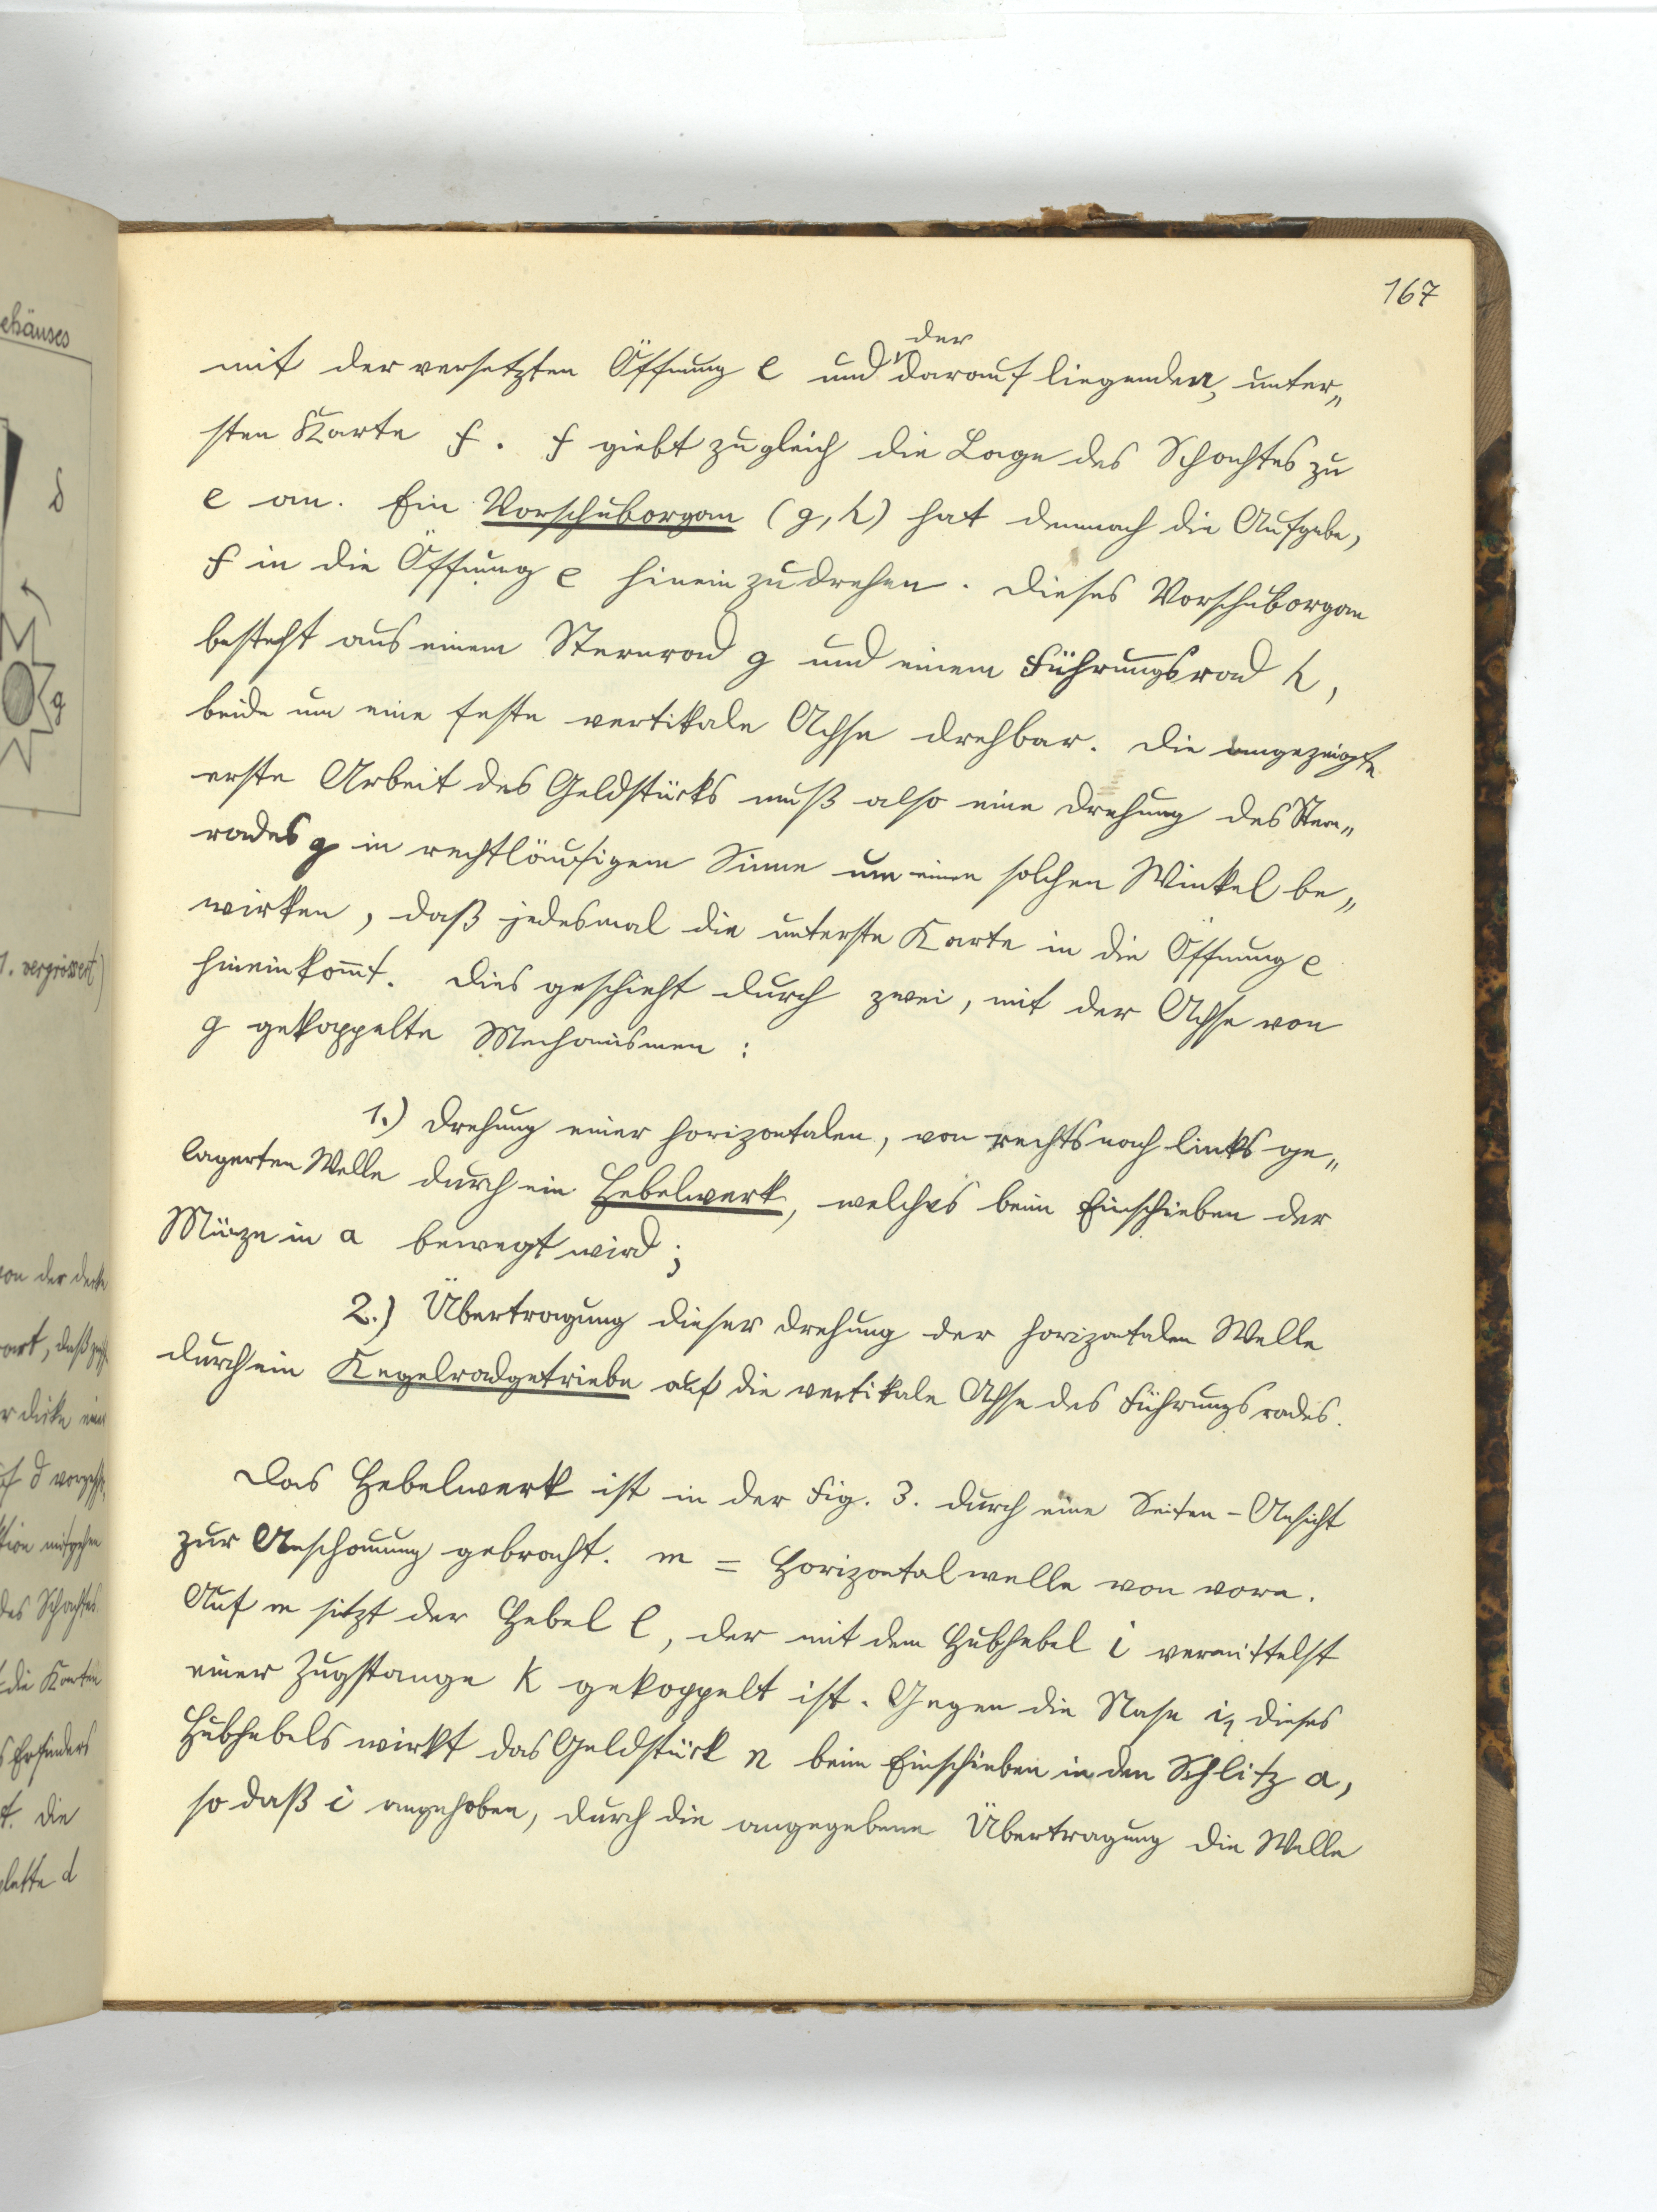 167
der
mit der versetzten Öffnung e und darauf liegenden, unter„
sten Karte f. f giebt zugleich die Lage des Schachtes zu
e an. Ein Vorschuborgan (g, h) hat demnach die Aufgabe,
f in die Öffnung e hineinzudrehen. Dieses Vorschuborgan
besteht aus einem Sternrad g und einem Führungsrad h,
beide um eine feste vertikale Achse drehbar. Die angezeigte
erste Arbeit des Geldstücks muß also eine Drehung des Stern„
rades g in rechtläufigem Sinne um einen solchen Winkel be„
wirken, daß jedesmal die unterste Karte in die Öffnung e
hineinkom̄t. Dies geschieht durch zwei, mit der Achse von
g gekoppelte Mechanismen:
1.) Drehung einer horizontalen, von rechts nach links ge„
lagerten Welle durch ein Hebelwerk, welches beim Einschieben der
Münze in a bewegt wird;
2.) Übertragung dieser Drehung der horizontalen Welle
durch ein Kegelradgetriebe auf die vertikale Achse des Führungsrades.
Das Hebelwerk ist in der Fig. 3. durch eine Seiten-Ansicht
zur Anschauung gebracht. m = Horizontalwelle von vorn.
Auf m sitzt der Hebel l, der mit dem Hubhebel i vermittelst
einer Zugstange k gekoppelt ist. Gegen die Nase i₁ dieses
Hubhebels wirkt das Geldstück n beim Einschieben in den Schlitz a,
so daß i angehoben, durch die angegebene Übertragung die Welle
ehäuses
d
g
1. vergrössert)
von der Decke
art, daß
r dicke
f d
tion mitgehen
des Schachtes.
die Karten
s Erfinders
t. Die
platte d